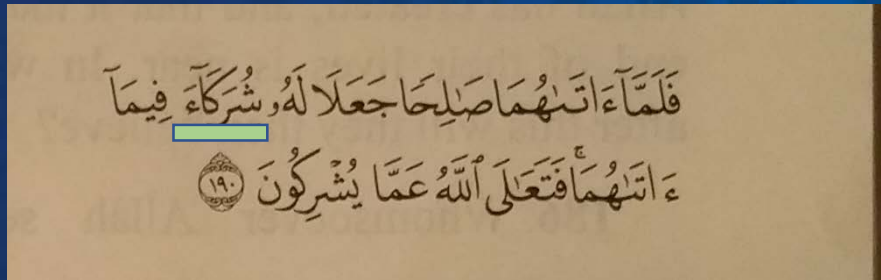 فَلَمَّآ ءَاتَىٰهُمَا صَٰلِحًا جَعَلَا لَهُۥ شُرَكَآءَ فِيمَآ
ءَاتَىٰهُمَا ۚ فَتَعَٰلَى ٱللَّهُ عَمَّا يُشْرِكُونَ ١٩٠